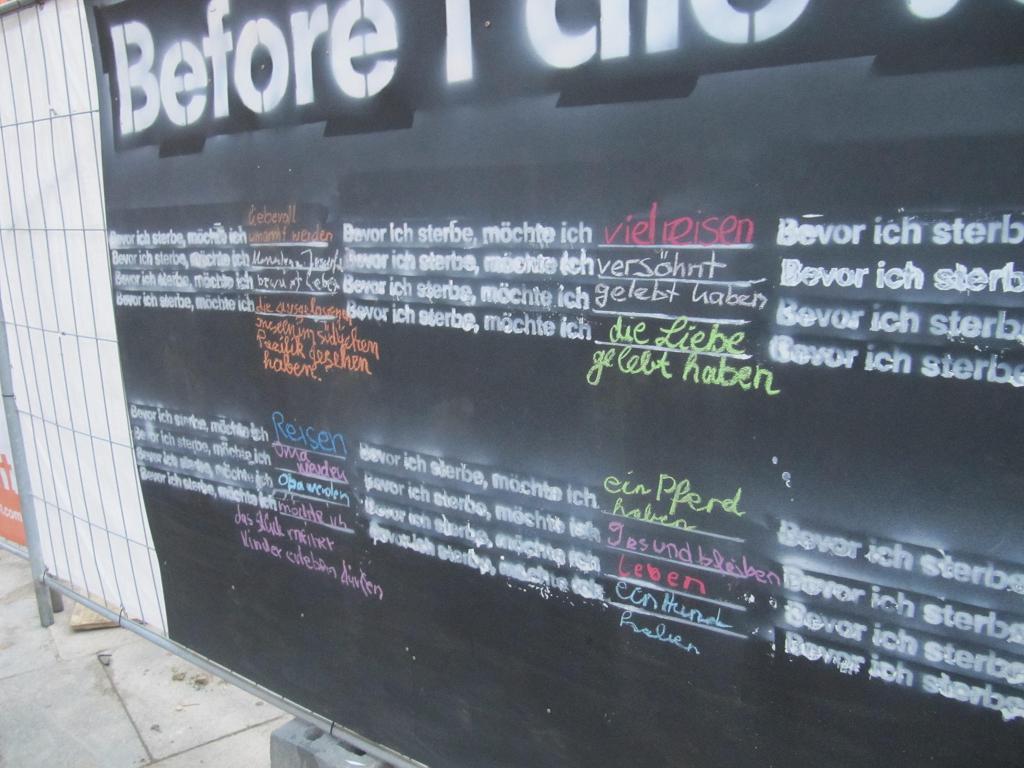 Before I die
liebevoll
Bevor ich sterbe, möchte ich umarmt werden
Bevor ich sterbe, möchte ich
Bevor ich sterbe, möchte ich bewusst leben
Bevor ich sterbe, möchte ich die
Inseln im südlichen
Pazifik gesehen
haben.
Bevor ich sterbe, möchte ich viel reisen
Bevor ich sterbe, möchte ich versöhnt
Bevor ich sterbe, möchte ich gelebt haben
Bevor ich sterbe, möchte ich die Liebe
gelebt haben
Bevor ich sterb
Bevor ich sterb
Bevor ich sterb
Bevor ich sterbe
Bevor ich sterbe, möchte ich Reisen
Bevor ich sterbe, möchte ich Oma werden
Bevor ich sterbe, möchte ich Opa werden
Bevor ich sterbe, möchte ich möchte ich
das Glück meiner
Kinder erleben dürfen
Bevor ich sterbe, möchte ich ein Pferd
haben
Bevor ich sterbe, möchte ich gesund bleiben
Bevor ich sterbe, möchte ich Leben
Bevor ich sterbe, möchte ich ein Hund
haben
Bevor ich sterbe
Bevor ich sterbe
Bevor ich sterbe
Bevor ich sterbe